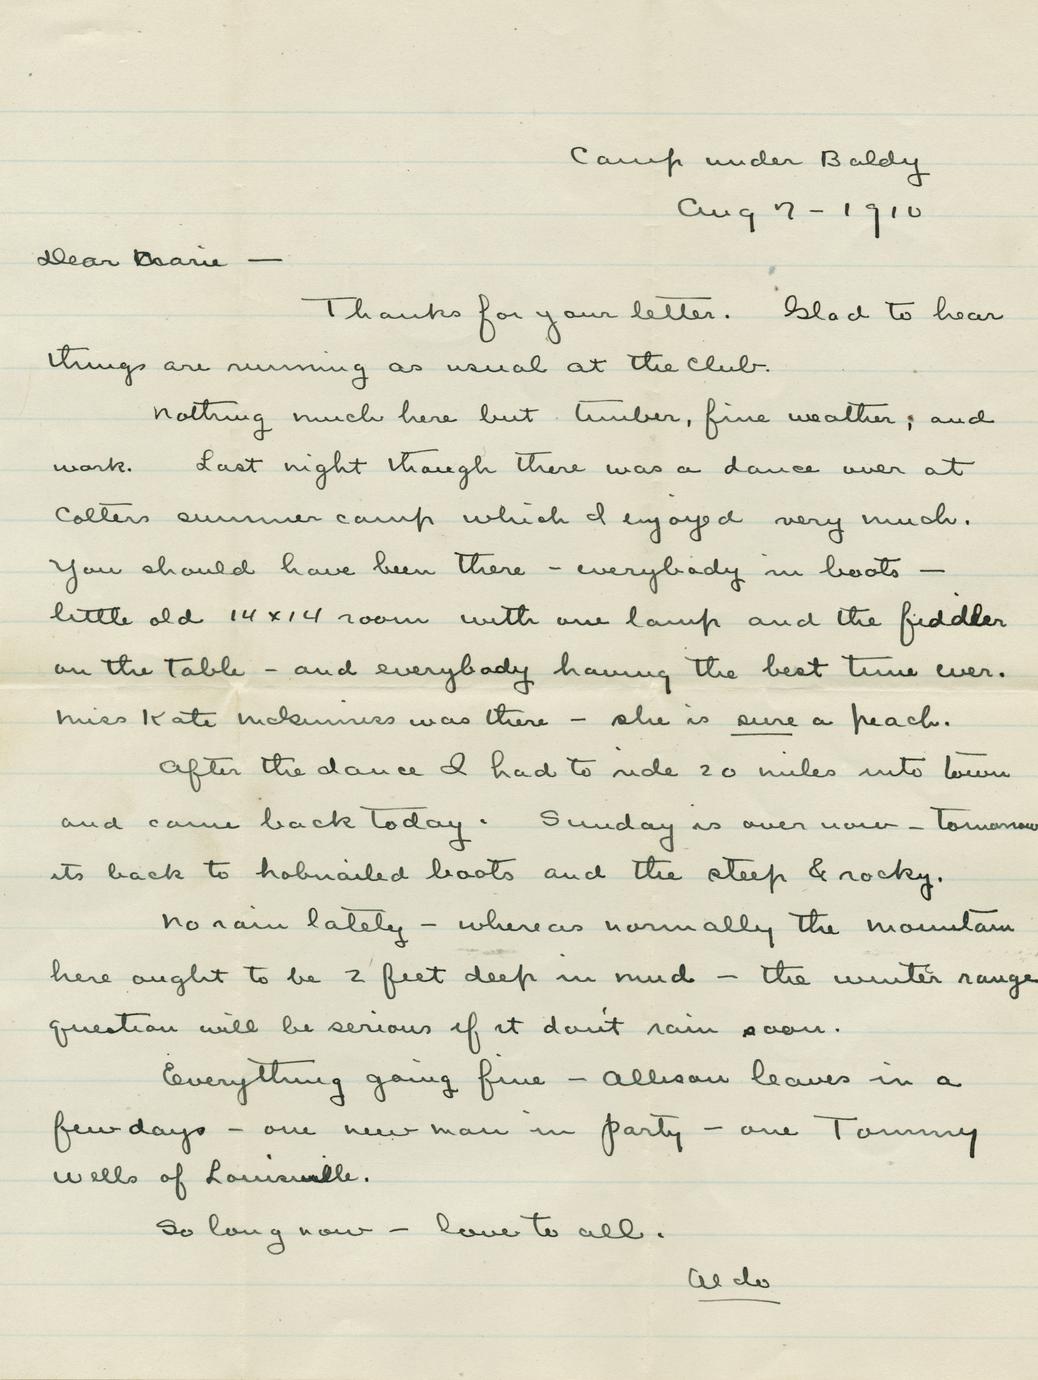 Camp under Baldy
Aug 7 - 1910
Dear Marie —
Thanks for your letter. Glad to hear
things are running as usual at the Club.
Nothing much here but timber, fine weather, and
work. Last night though there was a dance over at
Colters summer camp which I enjoyed very much.
You should have been there - everybody in boots —
little old 14 x 14 room with one lamp and the fiddler
on the table - and everybody having the best time ever.
Miss Kate McKinniss was there - she is sure a peach.
After the dance I had to ride 20 miles into town
and came back today. Sunday is over now - tomorrow
its back to hobnailed boots and the steep & rocky.
No rain lately - whereas normally the mountain
here ought to be 2 feet deep in mud - the winter range
question will be serious if it don't rain soon.
Everything going fine - Allison leaves in a
few days - one new man in party - one Tommy
Wells of Louisville.
So long now - love to all.
Aldo